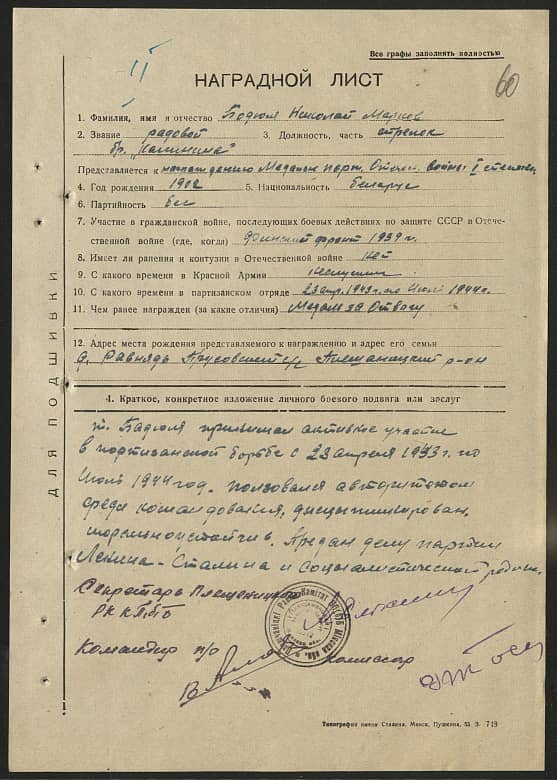 Все графы заполнять полностью
II
60
НАГРАДНОЙ ЛИСТ
1. Фамилия, имя и отчество Бадюля Николай Марков
2. Звание рядовой 3. Должность, часть стрелок
бр. "Калинина"
Представляется к награждению Медалью парт. Отечеств. войны I степени
4. Год рождения 1902 5. Национальность беларус
6. Партийность б/п
7. Участие в гражданской войне, последующих боевых действиях по защите СССР и Отече-
ственной войне (где, когда) Финский фронт 1939 г.
8. Имеет ли ранения и контузии в Отечественной войне нет
9. С какого времени в Красной Армии
10. С какого времени в партизанском отряде 23 апр. 1943 г. по июль 1944 г.
11. Чем ранее награжден (за какие отличия) Медаль за Отвагу
12. Адрес места рождения представляемого к награждению и адрес его семьи
д. с/с Плещеницкий р-он
4. Краткое, конкретное изложение личного боевого подвига или заслуг
т. Бадюля принимал активное участие
в партизанской борьбе с 23 апреля 1943 г. по
июль 1944 год. пользовался авторитетом
среди командования, дисциплинирован,
морально устойчив. Предан делу партии
Ленина-Сталина и социалистической родине.
Секретарь Плещеницкого
РК КПбБ
Командир п/о Комиссар
ДЛЯ ПОДШИВКИ
Типография имени Сталина, Минск, Пушкина, 55. З. 719